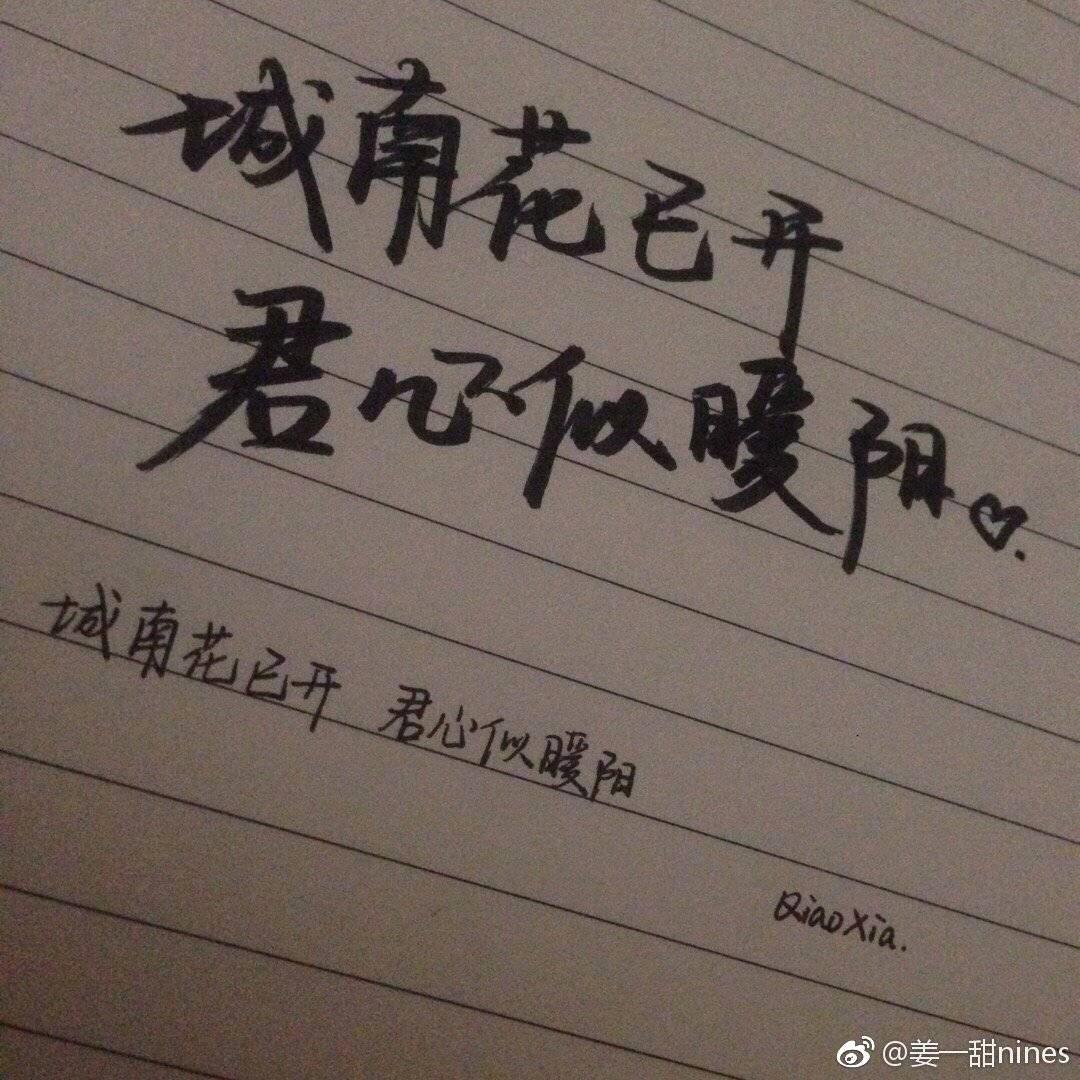 城南花已开
君心似暖阳♡.
城南花已开 君心似暖阳
QiaoXia.
@姜一甜nines